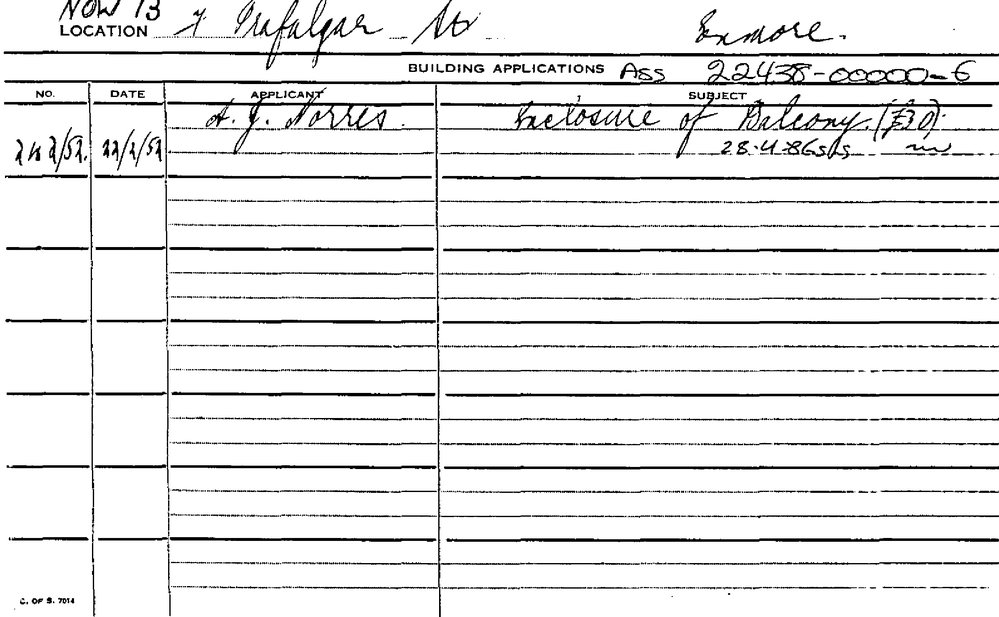 NOW 13
LOCATION 7 Trafalgar St Enmore.
BUILDING APPLICATIONS Ass 22438-00000-6
NO. DATE APPLICANT SUBJECT
A. J. Norres. Enclosure of Balcony. (£30).
242/52. 22/2/52 28.4.86
C. OF S. 7014